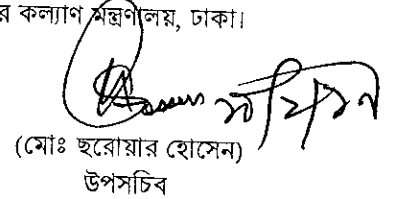 র কল্যাণ মন্ত্রণালয়, ঢাকা।
(মোঃ ছরোয়ার হোসেন)
উপসচিব